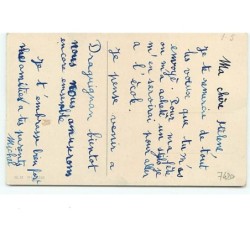 Ma chère Hélène
Je te remercie de tout
les voeux que tu m'as
envoyé. Pour ma fête
on m'a acheté un stylo je
m'en servirai pour aller
a l'école.
Je pense venir a
Draguignan bientot
nous nous amuserons
encore ensemble
Je t'embrasse bien fort
mes amitiés a tes parents
Michel
7620